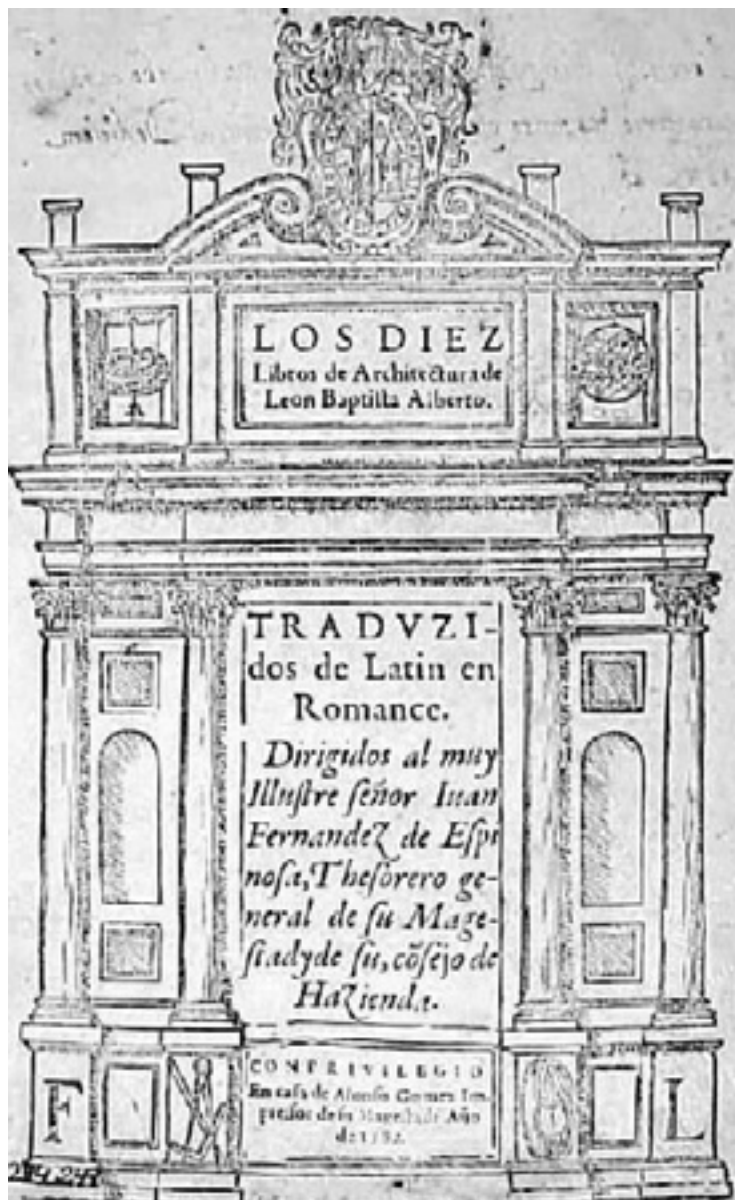 LOS DIEZ
Libros de Architectura de
Leon Baptista Alberto.
TRADVZI-
dos de Latin en
Romance.
Dirigidos al muy
Illustre señor Iuan
Fernandez de Espi
nosa, Thesorero ge-
neral de su Mage-
stad y de su, cõsejo de
Hazienda.
CON PRIVILEGIO
En casa de Alonso Gomez Im-
pressor de su Magestad. Año
de 1582.
F
L